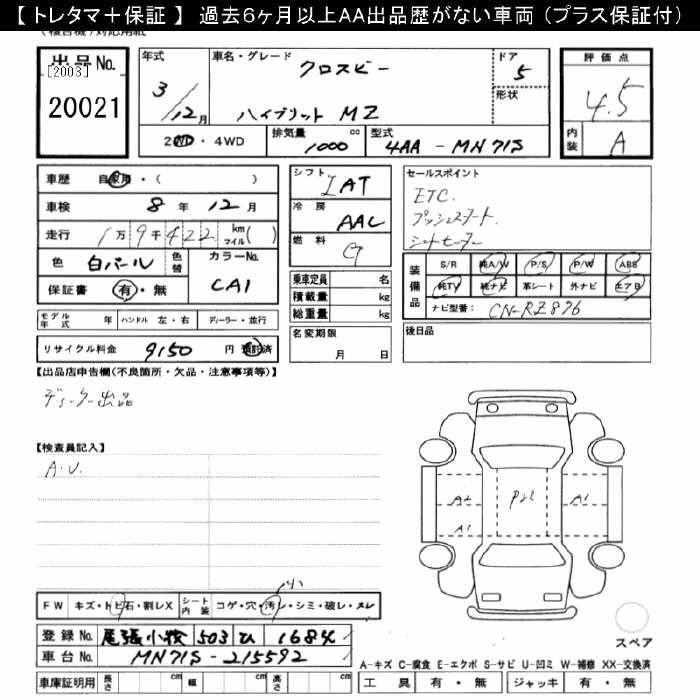 【 トレタマ＋保証 】 過去６ヶ月以上ＡＡ出品歴がない車両（プラス保証付）
出品No.
[2003]
20021
年式 車名・グレード ドア 評価点
3/12月 クロスビー 5 4.5
ハイブリット MZ 形状
2WD・4WD 排気量 1000 cc 型式 4AA-MN71S 内装 A
車歴 自家用・( )
車検 8年 12月
走行 1万9千422 km マイル( )
色 白パール 色替 カラーNo. CA1
保証書 有・無
モデル年式 年 ハンドル 左・右 ディーラー・並行
リサイクル料金 9150 円 預託済
シフト IAT
冷房 AAC
燃料 G
乗車定員 名
積載量 kg
総重量 kg
名変期限 月 日
セールスポイント
ETC.
プッシュスタート.
シートヒーター
装備品 S/R 純A/W P/S P/W ABS
純TV 純ナビ 革シート 外ナビ エアB
ナビ型番: CN-RZ876
後日品
【出品店申告欄(不良箇所・欠品・注意事項等)】
ディーラー出品
【検査員記入】
A.U.
A2 A1
A1
小
FW キズ・トビ石・割レX シート内装 コゲ・穴・汚レ・シミ・破レ・スレ
登録No. 尾張小牧 503 ひ 1684
車台No. MN71S-215592
車庫証明用 長さ cm 幅 cm 高さ cm
スペア
A-キズ C-腐食 E-エクボ S-サビ U-凹ミ W-補修 XX-交換済
工具 有・無 ジャッキ 有・無